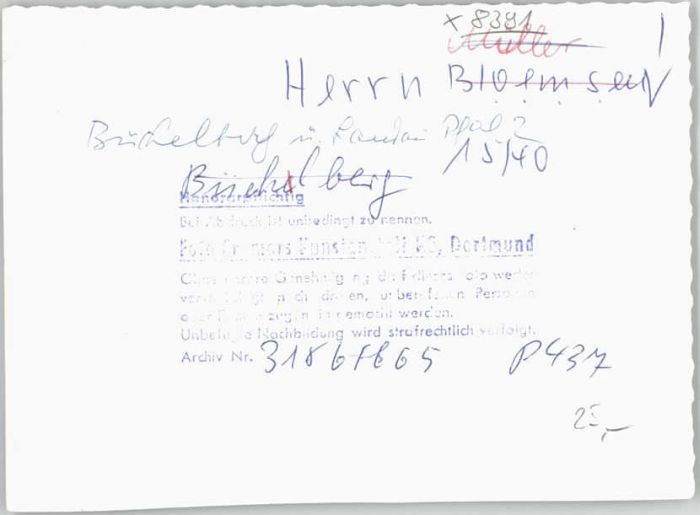 x 8391
Müller
Herrn Bloemsen
Büchelberg u. Landau Pfalz
15/40
Büchelberg
Honorarpflichtig
Bei Abdruck ist unbedingt zu nennen.
Foto Cramers Kunstanstalt KG, Dortmund
Ohne unsere Genehmigung darf dieses Foto weder
vervielfältigt noch dritten, unberufenen Personen
oder gemacht werden.
Unbefugte Nachbildung wird strafrechtlich verfolgt.
Archiv Nr. P 437
25,-